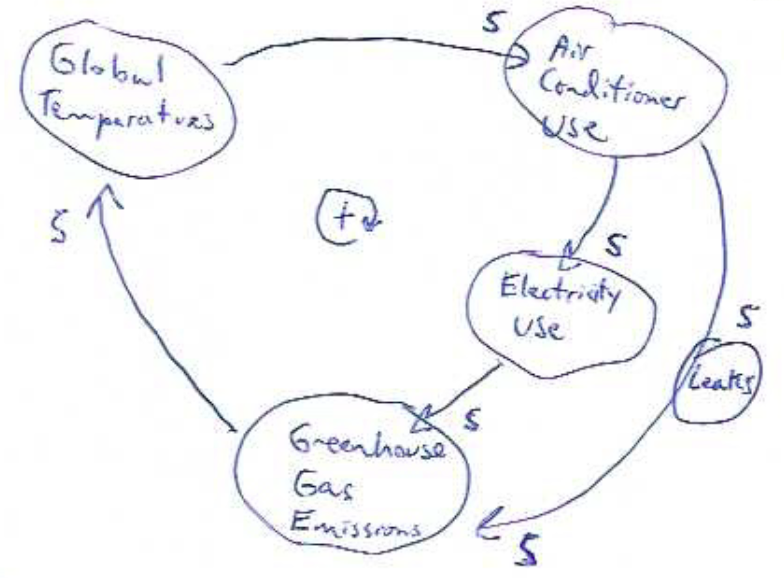 Global
Temperatures
S
Air
Conditioner
Use
S
+
S
Electricity
Use
S
Leaks
S
Greenhouse
Gas
Emissions
S
S